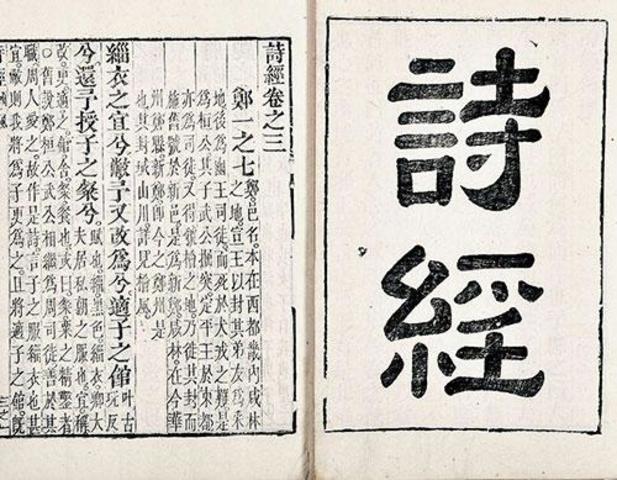 詩經
詩經卷之三
鄭一之七
鄭邑名。本在西都畿內咸林
之地宣王以封其弟友為采
地後為幽王司徒而死於犬戎之難是
為桓公其子武公掘突定平王於東都
亦為司徒又得虢檜之地乃徙其封而
施舊號於新邑是為新鄭咸林在今華
州鄭縣新鄭即今之鄭州是
也其封域山川詳見檜風
緇衣之宜兮敝予又改為兮適子之館叶古玩反
兮還予授子之粲兮。
賦也。緇黑色。緇衣卿大
夫居私朝之服也。宜稱
改。更。適。之。館。舍。粲。餐也。或曰粲。粟之精鑿者
○舊說鄭桓公武公相繼為周司徒善於其
職。周人愛之。故作是詩言子之服緇衣也甚
宜。敝則我將為子更為之。且將適子之館。既